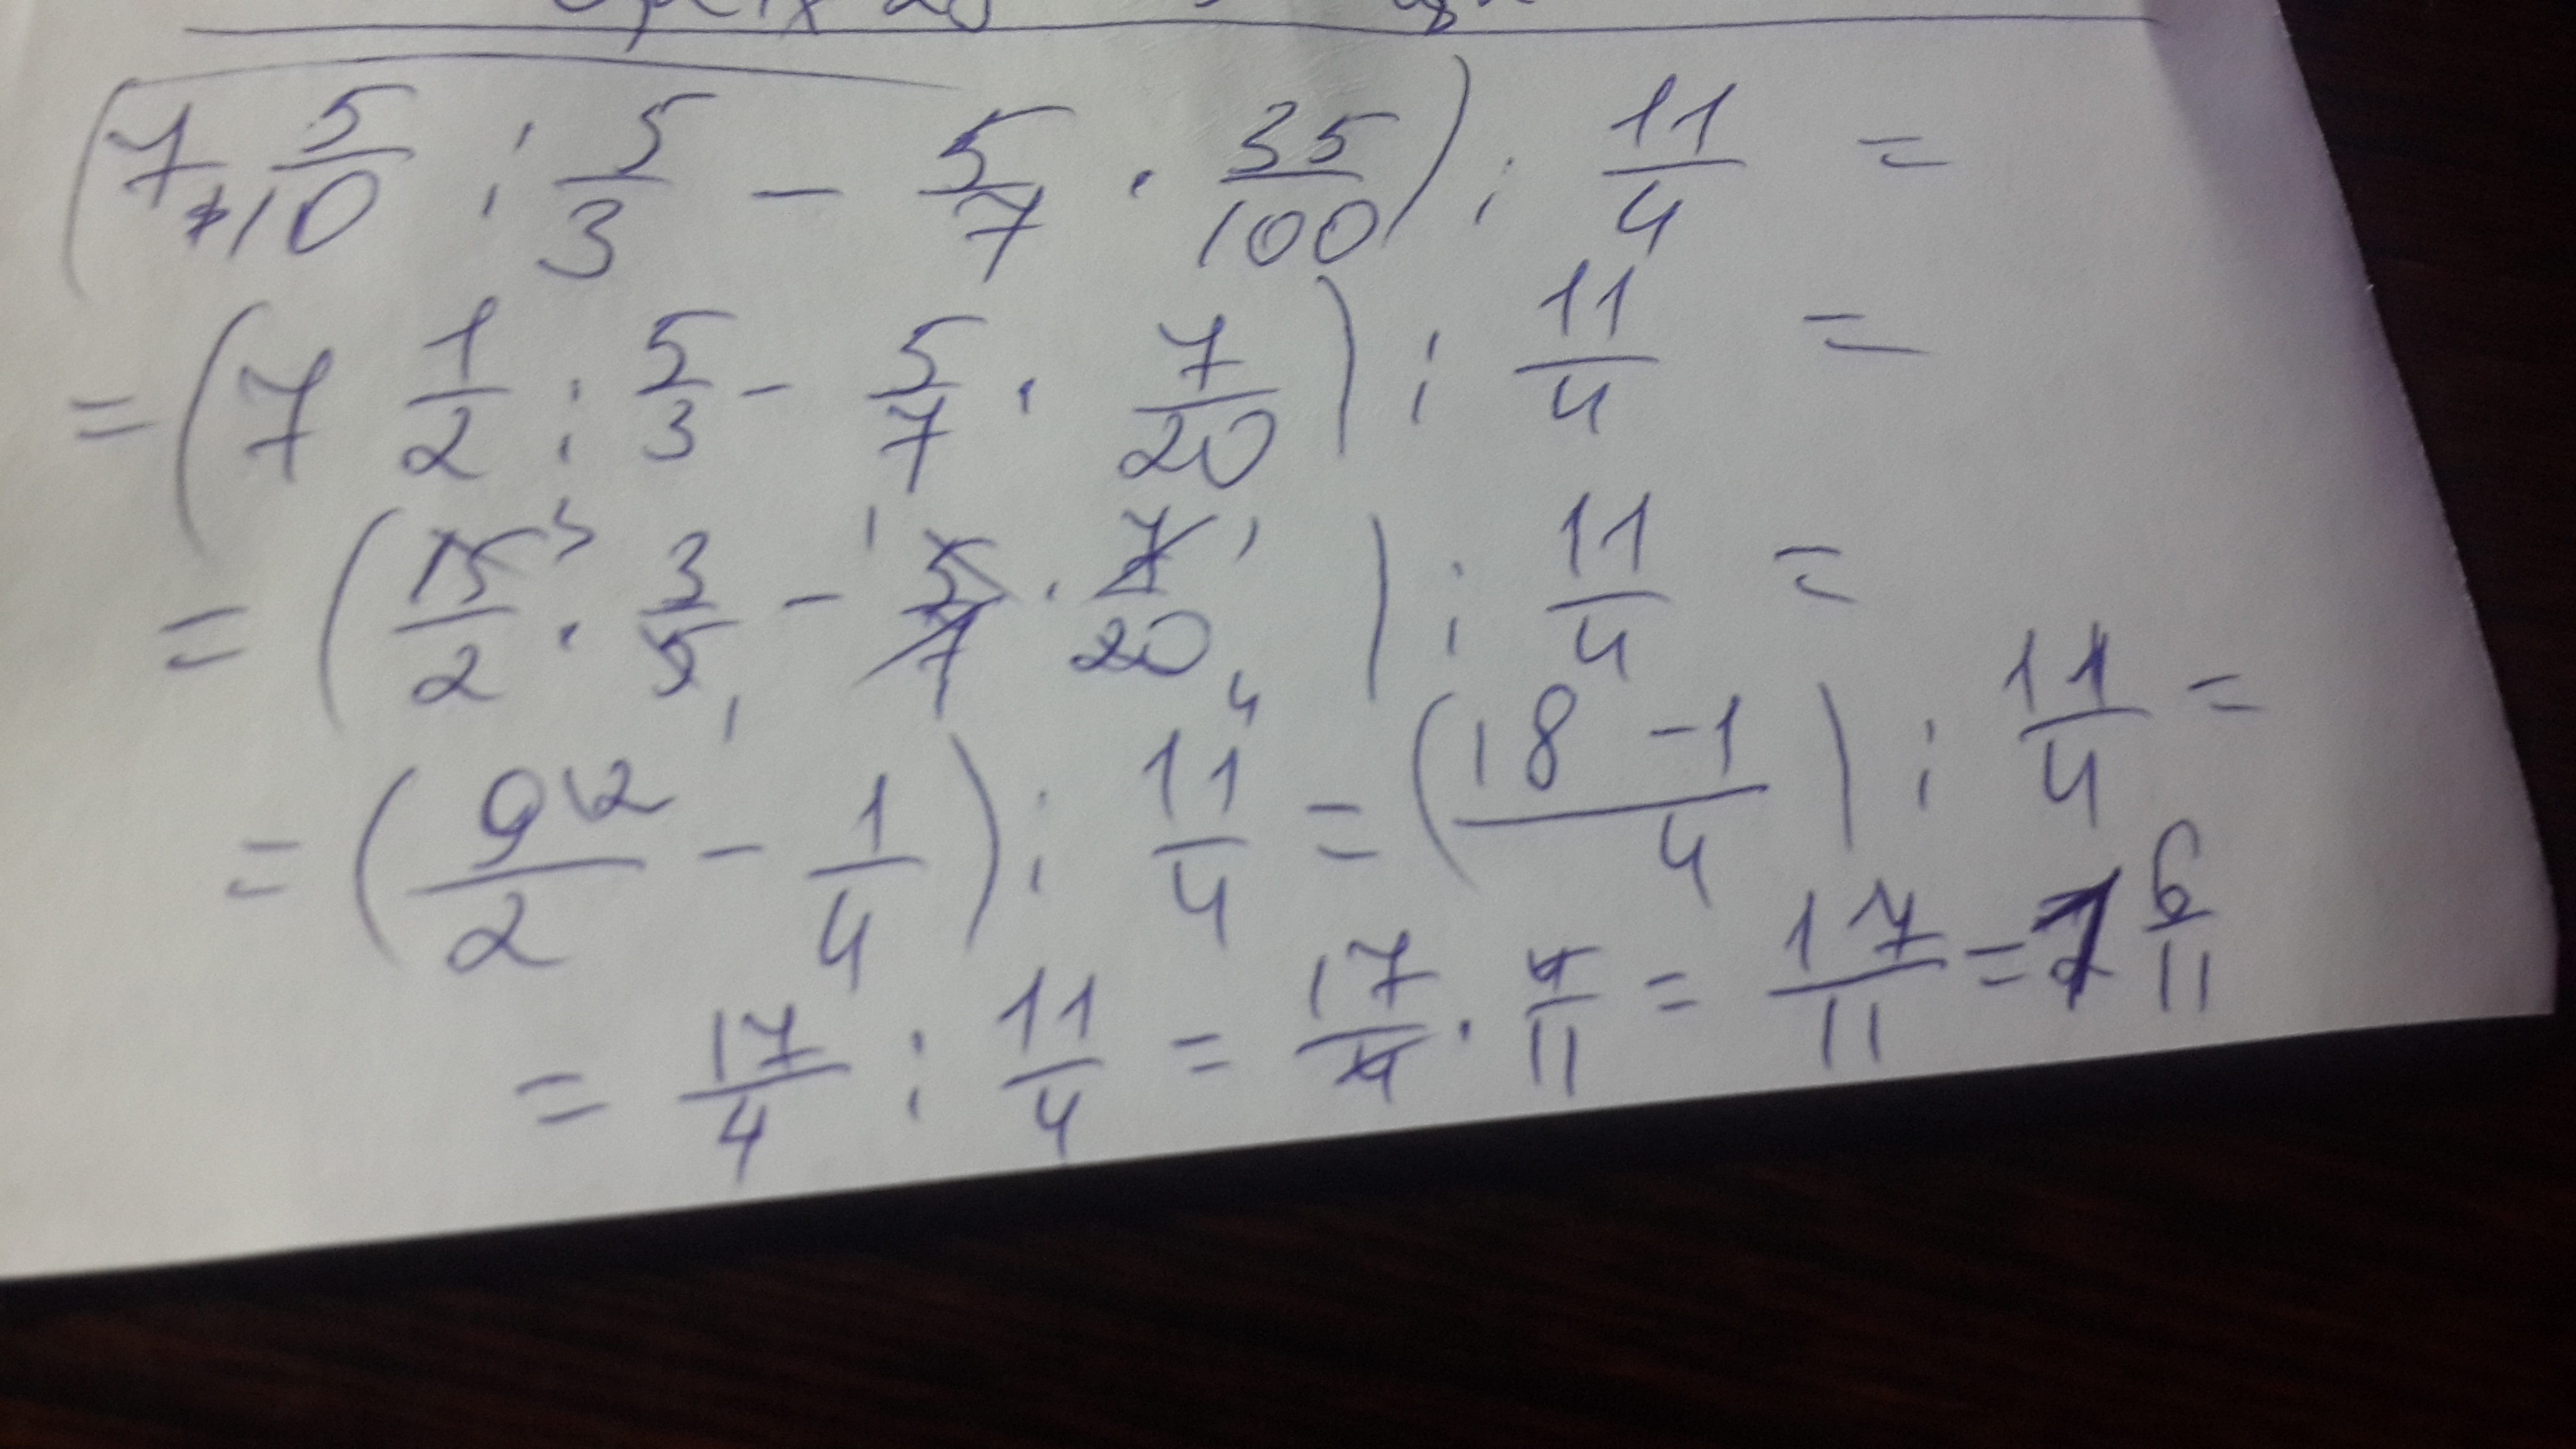 (7 5/10 : 5/3 - 5/7 · 35/100) : 11/4 =
= (7 1/2 : 5/3 - 5/7 · 7/20) : 11/4 =
= (15/2 3 · 3/5 1 - 1 5/7 · 7/20 1 4) : 11/4 =
= (9\2/2 - 1/4) : 11/4 = (18 - 1/4) : 11/4 =
= 17/4 : 11/4 = 17/4 · 4/11 = 17/11 = 1 6/11